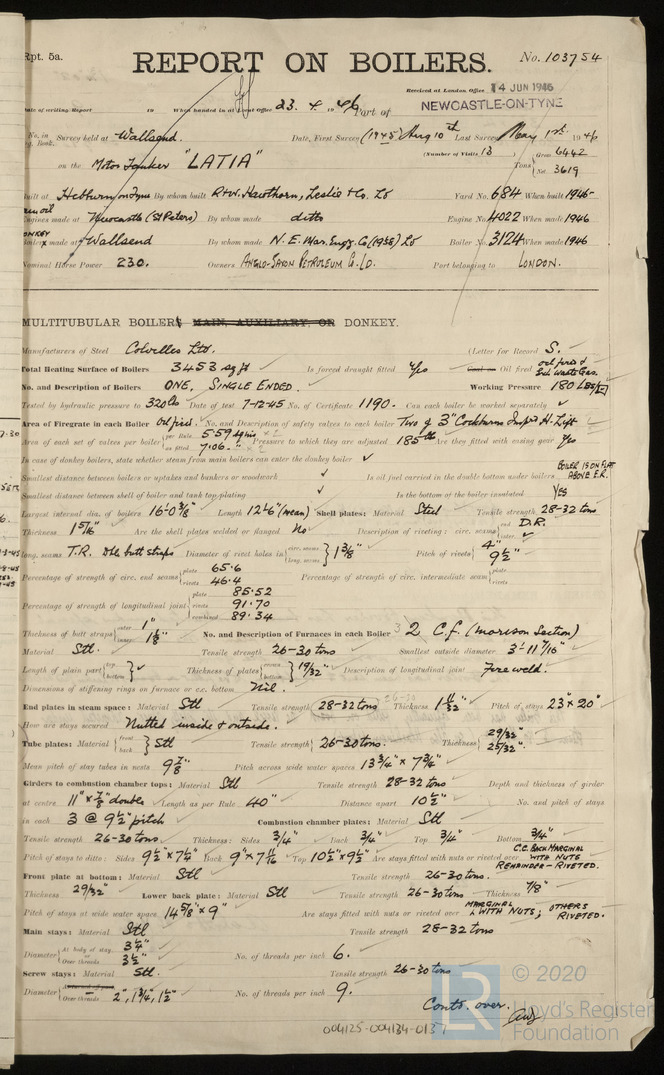 Rpt. 5a.
REPORT ON BOILERS.
No. 103754
Received at London Office 14 JUN 1946
NEWCASTLE-ON-TYNE
Date of writing Report 19 When handed in at Local Office 23. 4. 1946 Port of
No. in Survey held at Wallsend. Date, First Survey (1945) Aug 10th Last Survey May 1st 1946
Reg. Book. (Number of Visits 13)
on the Motor Tanker "LATIA" Tons Gross 6442
Net 3619
Built at Hebburn on Tyne By whom built R & W. Hawthorn, Leslie & Co. Ld Yard No. 684 When built 1946
Engines made at Newcastle (St Peters) By whom made ditto Engine No. 4022 When made 1946
Boilers made at Wallsend By whom made N. E. Mar. Engg. Co. (1938) Ld Boiler No. 3124 When made 1946
Nominal Horse Power 230. Owners ANGLO-SAXON PETROLEUM Co. LD. Port belonging to LONDON.
MULTITUBULAR BOILERS MAIN, AUXILIARY, OR DONKEY.
Manufacturers of Steel Colvilles Ltd. (Letter for Record S.
Total Heating Surface of Boilers 3453 sq ft Is forced draught fitted Yes Coal or Oil fired oil fired & Exh. Waste Gas.
No. and Description of Boilers ONE, SINGLE ENDED. Working Pressure 180 LBS/□"
Tested by hydraulic pressure to 320 lbs Date of test 7-12-45 No. of Certificate 1190. Can each boiler be worked separately ✓
Area of Firegrate in each Boiler Oil fired. No. and Description of safety valves to each boiler Two of 3" Cockburns Impd H. Lift
Area of each set of valves per boiler per Rule 5.59 sq ins × 2 as fitted 7.06. " × 2 Pressure to which they are adjusted 185 lbs Are they fitted with easing gear Yes
In case of donkey boilers, state whether steam from main boilers can enter the donkey boiler ✓
Smallest distance between boilers or uptakes and bunkers or woodwork ✓ Is oil fuel carried in the double bottom under boilers BOILER IS ON FLAT ABOVE E.R.
Smallest distance between shell of boiler and tank top plating ✓ Is the bottom of the boiler insulated Yes
Largest internal dia. of boilers 16'-0 3/8" Length 12'-6" (mean) Shell plates: Material Steel Tensile strength 28-32 tons
Thickness 1 5/16" Are the shell plates welded or flanged No Description of riveting: circ. seams end D.R. inter. ✓
long. seams T.R. Dble butt straps Diameter of rivet holes in circ. seams long. seams 1 3/8" Pitch of rivets 4" 9 1/2"
Percentage of strength of circ. end seams plate 65.6 rivets 46.4 Percentage of strength of circ. intermediate seam plate rivets
Percentage of strength of longitudinal joint plate 85.52 rivets 91.70 combined 89.34
Thickness of butt straps outer 1" inner 1 1/8" No. and Description of Furnaces in each Boiler 3 2 C.f. (Morison Section)
Material Stl. Tensile strength 26-30 tons Smallest outside diameter 3'-11 7/16"
Length of plain part top bottom ✓ Thickness of plates crown bottom 19/32" Description of longitudinal joint Fire weld.
Dimensions of stiffening rings on furnace or c.c. bottom Nil.
End plates in steam space: Material Stl Tensile strength 28-32 tons 26-30 Thickness 1 11/32" Pitch of stays 23" × 20"
How are stays secured Nutted inside & outside.
Tube plates: Material front back Stl Tensile strength 26-30 tons. Thickness 29/32" 25/32"
Mean pitch of stay tubes in nests 9 7/8" Pitch across wide water spaces 13 3/4" × 7 3/4"
Girders to combustion chamber tops: Material Stl Tensile strength 28-32 tons Depth and thickness of girder
at centre 11" × 7/8" double Length as per Rule 40" Distance apart 10 1/2" No. and pitch of stays
in each 3 @ 9 1/2" pitch Combustion chamber plates: Material Stl
Tensile strength 26-30 tons. Thickness: Sides 3/4" Back 3/4" Top 3/4" Bottom 3/4"
Pitch of stays to ditto: Sides 9 1/2" × 7 1/4" Back 9" × 7 11/16 Top 10 1/2" × 9 1/2" Are stays fitted with nuts or riveted over C.C. BACK MARGINAL WITH NUTS REMAINDER - RIVETED.
Front plate at bottom: Material Stl Tensile strength 26-30 tons.
Thickness 29/32" Lower back plate: Material Stl Tensile strength 26-30 tons Thickness 7/8"
Pitch of stays at wide water space 14 5/8" × 9" Are stays fitted with nuts or riveted over MARGINAL WITH NUTS; OTHERS RIVETED.
Main stays: Material Stl Tensile strength 28-32 tons
Diameter At body of stay, or Over threads 3 1/4" 3 1/2" No. of threads per inch 6.
Screw stays: Material Stl. Tensile strength 26-30 tons
Diameter Over threads 2", 1 3/4", 1 1/2" No. of threads per inch 9.
Contd. over.
004125-004134-0137
© 2020
LR
Lloyd's Register
Foundation